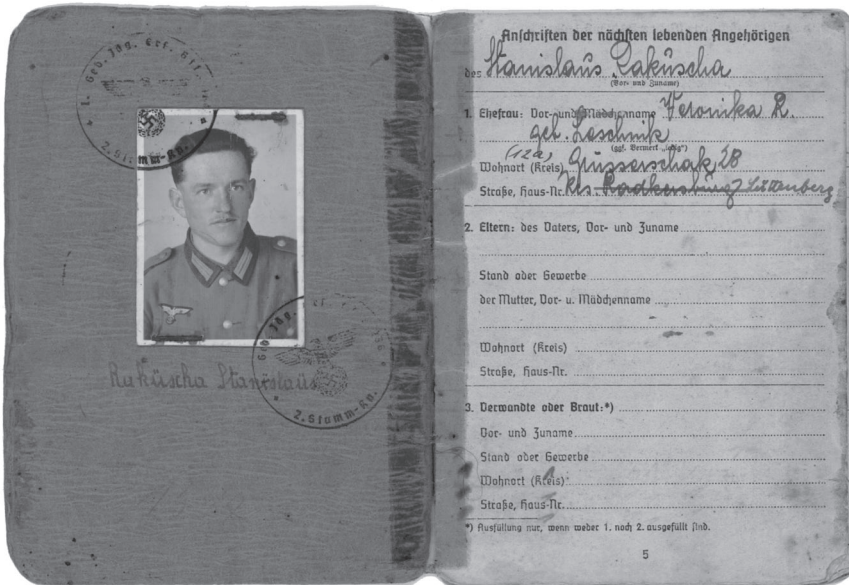 2. Stamm-Kp.
Rakuscha Stanislaus
2. Stamm-Kp.
Anschriften der nächsten lebenden Angehörigen
des Stanislaus Rakuscha
(Vor- und Zuname)
1. Ehefrau: Vor- und Mädchenname Veronika R.
geb. Leschnik
(ggf. Vermerk „ledig“)
(12a)
Wohnort (Kreis) 28
Straße, Haus-Nr. Krs. Radkersburg Luttenberg
2. Eltern: des Vaters, Vor- und Zuname
Stand oder Gewerbe
der Mutter, Vor- u. Mädchenname
Wohnort (Kreis)
Straße, Haus-Nr.
3. Verwandte oder Braut:*)
Vor- und Zuname
Stand oder Gewerbe
Wohnort (Kreis)
Straße, Haus-Nr.
*) Ausfüllung nur, wenn weder 1. noch 2. ausgefüllt sind.
5